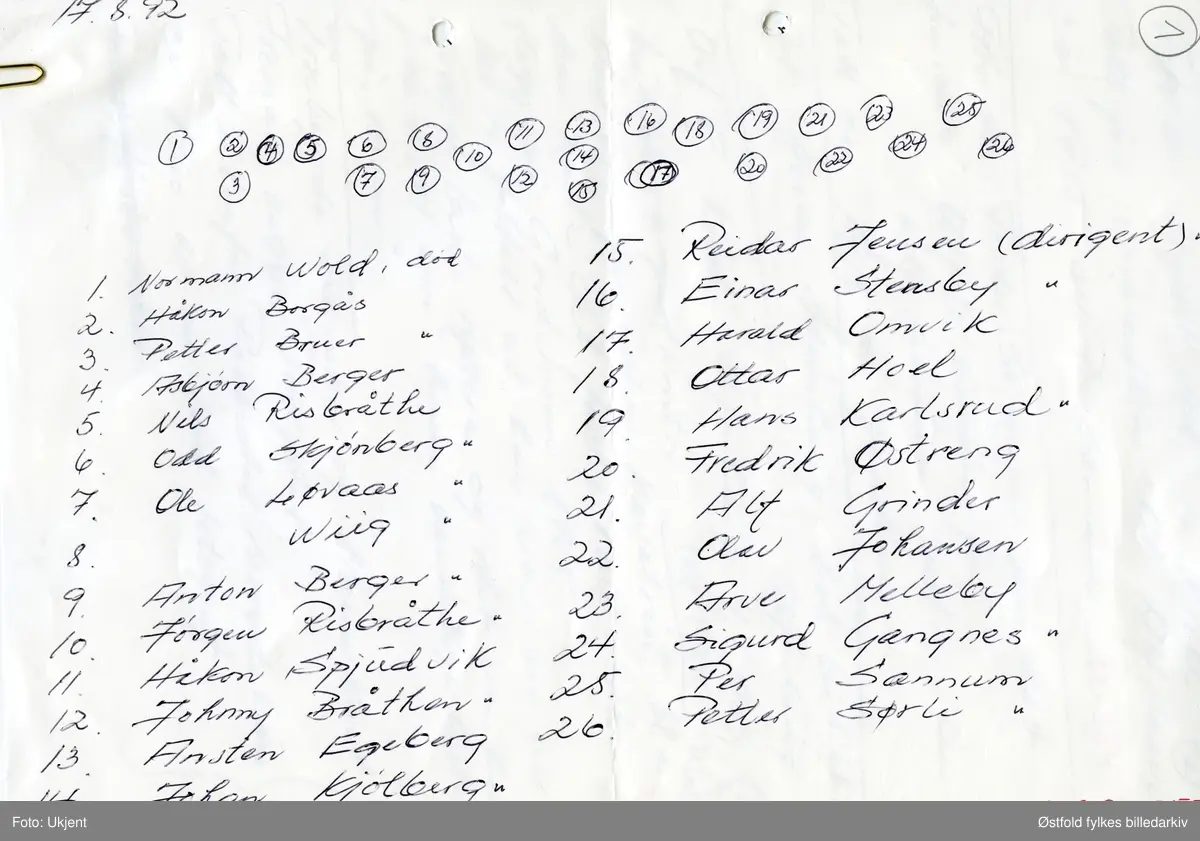 17.8.92
1 2 4 5 6 8 10 11 13 16 18 19 21 23 25
3 7 9 12 14 15 17 20 22 24 26
1. Normann Wold, død
2. Håkon Borgås
3. Petter Bruer "
4. Asbjørn Berger
5. Nils Risbråthe
6. Odd Skjönberg "
7. Ole Løvaas "
8. Wiig "
9. Anton Berger "
10. Jørgen Risbråthe "
11. Håkon Spjudvik
12. Johnny Bråthen "
13. Ansten Egeberg
14 Johan Kjölberg "
15. Reidar Jensen (dirigent) "
16. Einar Stensby "
17. Harald Omvik
18. Ottar Hoel
19. Hans Karlsrud "
20. Fredrik Østreng
21. Alf Grinder
22. Olav Johansen
23. Arve Melleby
24. Sigurd Gangnes "
25. Per Sannum
26. Petter Sørli "
Foto: Ukjent
Østfold fylkes billedarkiv